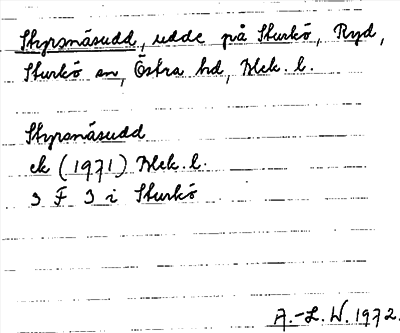 Styrsnäsudd, udde på Sturkö, Ryd,
Sturkö sn, Östra hd, Blek. l.
Styrsnäsudd
ek (1971) Blek. l.
3 F 3 i Sturkö
A.-L. W. 1972.